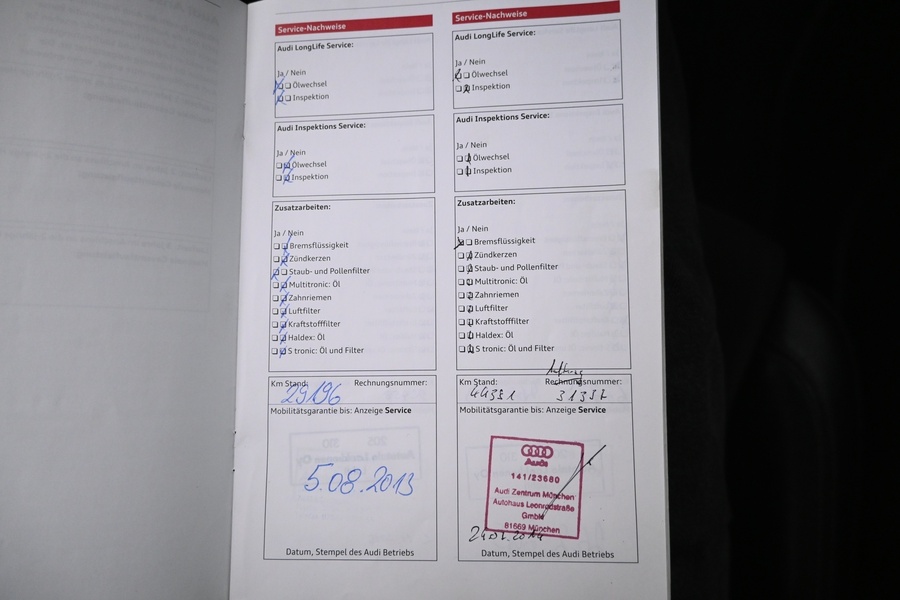 Service-Nachweise
Audi LongLife Service:
Ja / Nein
Ölwechsel
Inspektion
Audi Inspektions Service:
Ja / Nein
Ölwechsel
Inspektion
Zusatzarbeiten:
Ja / Nein
Bremsflüssigkeit
Zündkerzen
Staub- und Pollenfilter
Multitronic: Öl
Zahnriemen
Luftfilter
Kraftstofffilter
Haldex: Öl
S tronic: Öl und Filter
Km Stand: Rechnungsnummer:
29196
Mobilitätsgarantie bis: Anzeige Service
5.08.2013
Datum, Stempel des Audi Betriebs
Service-Nachweise
Audi LongLife Service:
Ja / Nein
Ölwechsel
Inspektion
Audi Inspektions Service:
Ja / Nein
Ölwechsel
Inspektion
Zusatzarbeiten:
Ja / Nein
Bremsflüssigkeit
Zündkerzen
Staub- und Pollenfilter
Multitronic: Öl
Zahnriemen
Luftfilter
Kraftstofffilter
Haldex: Öl
S tronic: Öl und Filter
Km Stand: Rechnungsnummer:
31337
Mobilitätsgarantie bis: Anzeige Service
Audi
141/23680
Audi Zentrum München
Autohaus Leonrodstraße
GmbH
81669 München
Datum, Stempel des Audi Betriebs